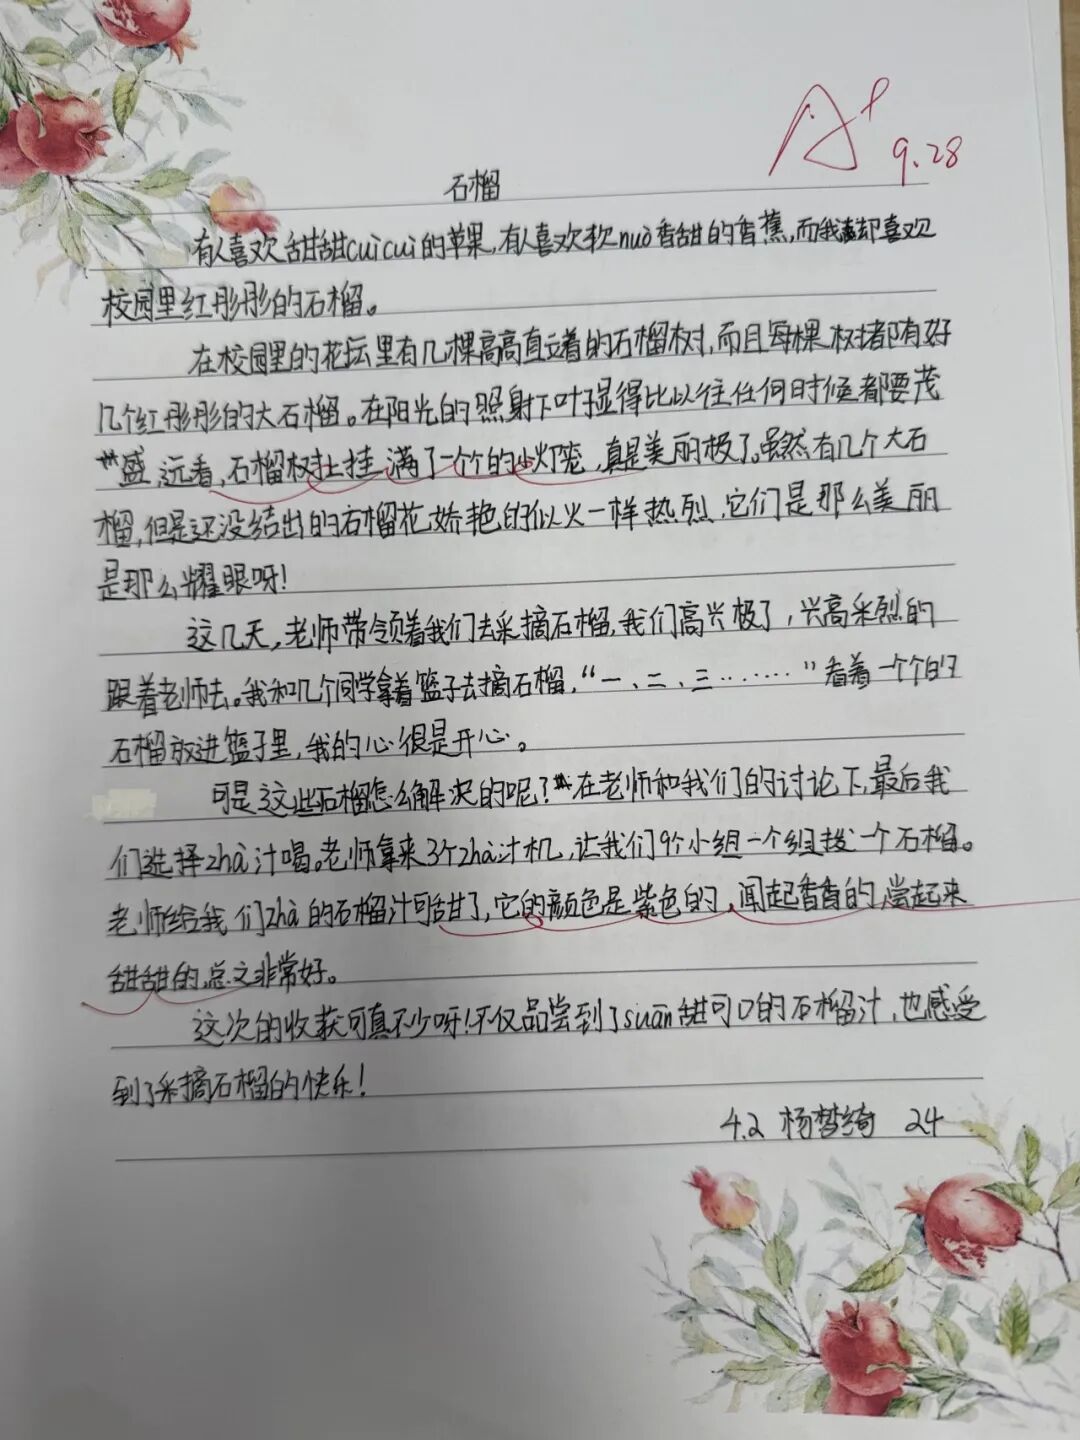 A+
9.28
石榴
有人喜欢甜甜cuicui的苹果,有人喜欢软nuò香甜的香蕉,而我却喜欢
校园里红彤彤的石榴。
在校园里的花坛里有几棵高高直立着的石榴树,而且每棵树都有好
几个红彤彤的大石榴。在阳光的照射下叶子显得比以往任何时候都要茂
盛,远看,石榴树上挂满了一个个的小灯笼,真是美丽极了。虽然有几个大石
榴,但是还没结出的石榴花娇艳的似火一样热烈,它们是那么美丽
是那么耀眼呀!
这几天,老师带领着我们去采摘石榴,我们高兴极了,兴高采烈的
跟着老师去。我和几个同学拿着篮子去摘石榴,“一、二、三……”看着一个个的
石榴放进篮子里,我的心很是开心。
可是这些石榴怎么解决的呢?在老师和我们的讨论下,最后我
们选择zhà汁喝。老师拿来3个zhà汁机,让我们9个小组一个组拨一个石榴。
老师给我们zhà的石榴汁可甜了,它的颜色是紫色的,闻起香香的,尝起来
甜甜的,总之非常好。
这次的收获可真不少呀!不仅品尝到了suān甜可口的石榴汁,也感受
到了采摘石榴的快乐!
4.2 杨梦绮 24